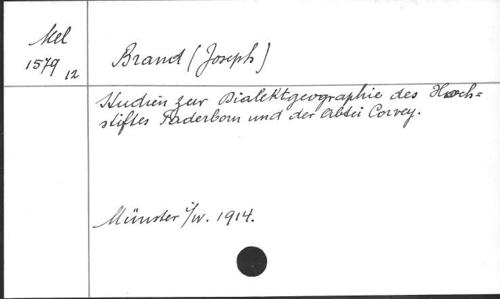 Mel
1579
12
Brand (Joseph)
Studien zur Dialektgeographie des Hoch=
stiftes Paderborn und der Abtei Corvey.
Münster i/W. 1914.